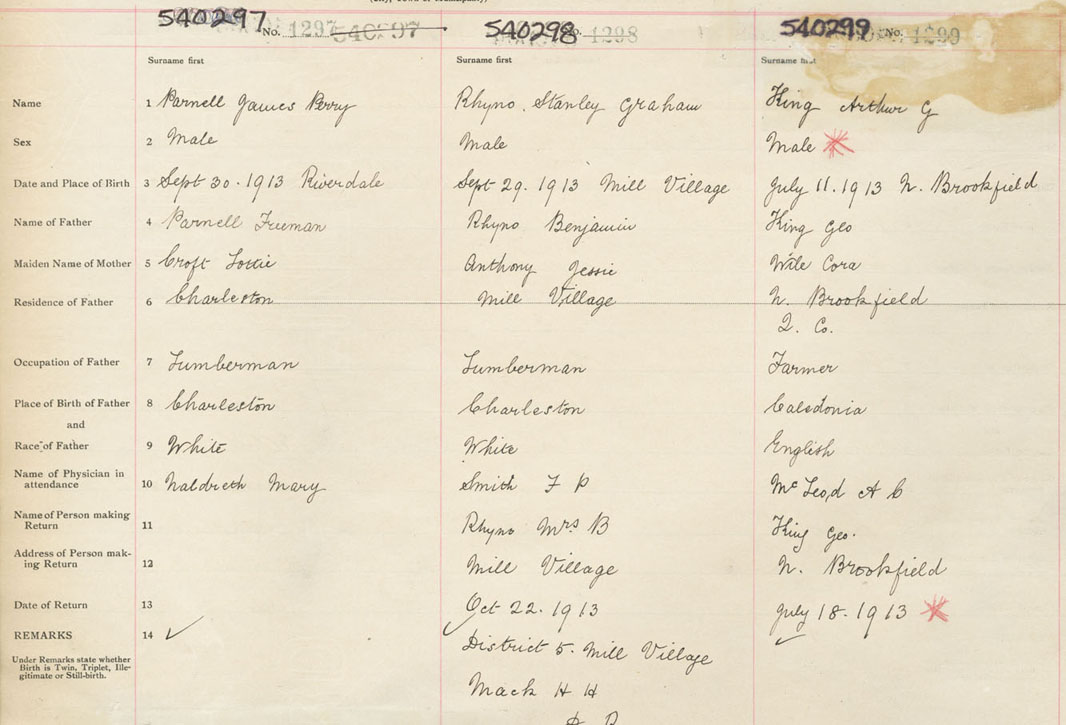 (City, Town or Municipality)
540297 No. 1297 540297 540298 No. 1298 540299 No. 1299
Surname first Surname first Surname first
Name 1 Parnell James Perry Rhyno. Stanley Graham King Arthur G
Sex 2 Male Male Male
Date and Place of Birth 3 Sept 30. 1913 Riverdale Sept 29. 1913 Mill Village July 11. 1913 N. Brookfield
Name of Father 4 Parnell Freeman Rhyno Benjamin King Geo
Maiden Name of Mother 5 Croft Lottie Anthony Jessie Wile Cora
Residence of Father 6 Charleston Mill Village N. Brookfield
Q. Co.
Occupation of Father 7 Lumberman Lumberman Farmer
Place of Birth of Father 8 Charleston Charleston Caledonia
and
Race of Father 9 White White English
Name of Physician in
attendance 10 Naldreth Mary Smith F P McLeod A C
Name of Person making
Return 11 Rhyno Mrs B King Geo.
Address of Person mak-
ing Return 12 Mill Village N. Brookfield
Date of Return 13 Oct 22. 1913 July 18. 1913
REMARKS 14 ✓ ✓ ✓
District 5. Mill Village
Under Remarks state whether
Birth is Twin, Triplet, Ille-
gitimate or Still-birth.
Mack H H